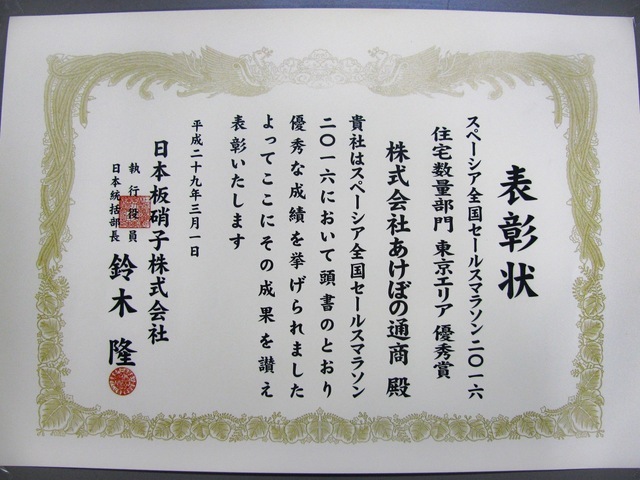 表彰状
スペーシア全国セールスマラソン二〇一六
住宅数量部門 東京エリア 優秀賞
株式会社あけぼの通商 殿
貴社はスペーシア全国セールスマラソン
二〇一六において頭書のとおり
優秀な成績を挙げられました
よってここにその成果を讃え
表彰いたします
平成二十九年三月一日
日本板硝子株式会社
執行役員
日本統括部長
鈴木 隆